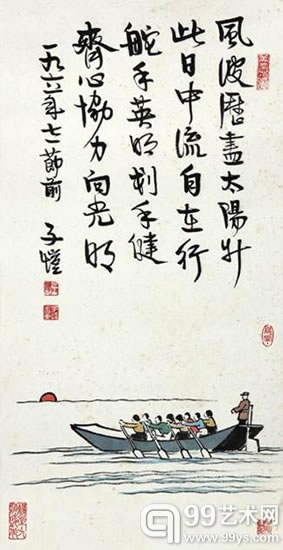 風波歷盡太陽升
此日中流自在行
舵手英明划手健
齊心協力向光明
一九六一年七一節前 子愷
99艺术网
www.99ys.com